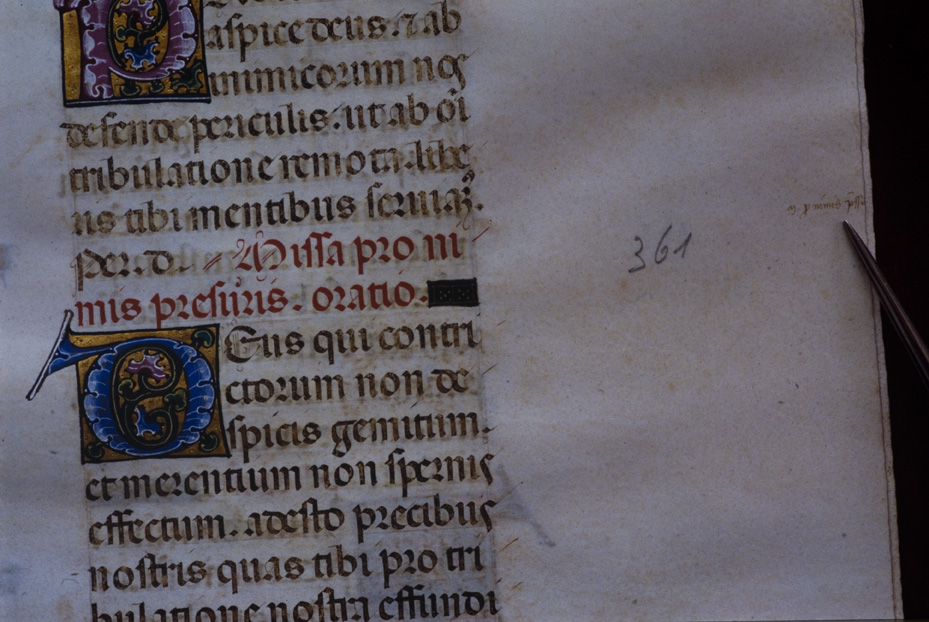 aspice deus. ⁊ ab
inimicorum nos
defende periculis. ut ab oi
tribulatione remota. libe
ris tibi mentibus seruiaꝫ.
Per. d. Missa pro ni
mis presuris. oratio.
Deus qui contri
ctorum non de
spicis gemitum.
et merentium non spernis
effectum. adesto precibus
nostris quas tibi pro tri
bulatione nostra effundi
361